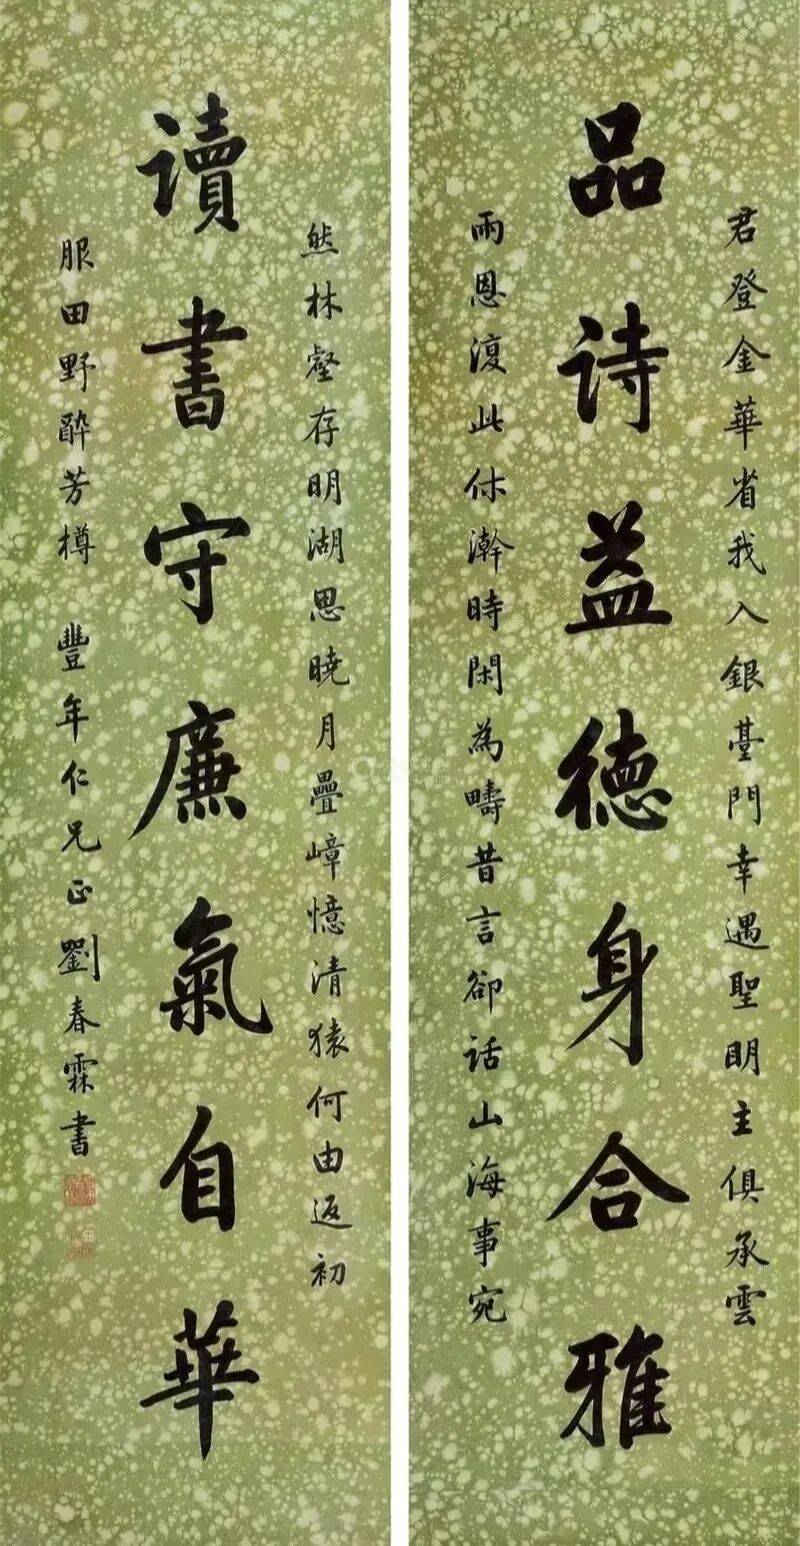 君登金華省我入銀臺門幸遇聖明主俱承雲
品诗益德身合雅
雨恩復此休澣時閑為疇昔言卻話山海事宛
然林壑存明湖思曉月疊嶂憶清猿何由返初
讀書守廉氣自華
服田野醉芳樽 豐年仁兄正劉春霖書